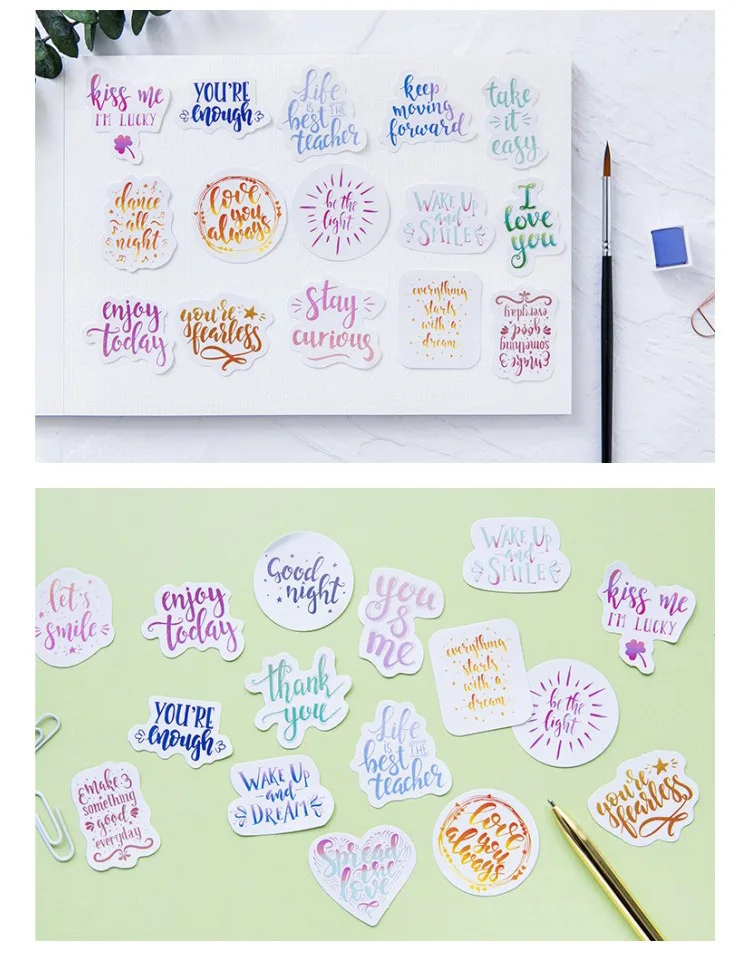 kiss me
I'M LUCKY
YOU'RE
enough
Life
IS
best THE
teacher
keep
moving
forward
take
it
easy
dance
all
night
love
you
always
be the
light
WAKE UP
and
SMILE
I
love
you
enjoy
today
you're
fearless
stay
curious
everything
starts
with a
dream
make
something
good
everyday
let's
smile
enjoy
today
Good
night
you
is
me
WAKE UP
and
SMILE
kiss me
I'M LUCKY
YOU'RE
enough
thank
you
Life
IS
best THE
teacher
everything
starts
with a
dream
be the
light
make
something
good
everyday
WAKE UP
and
DREAM
Spread
the
love
love
you
always
you're
fearless